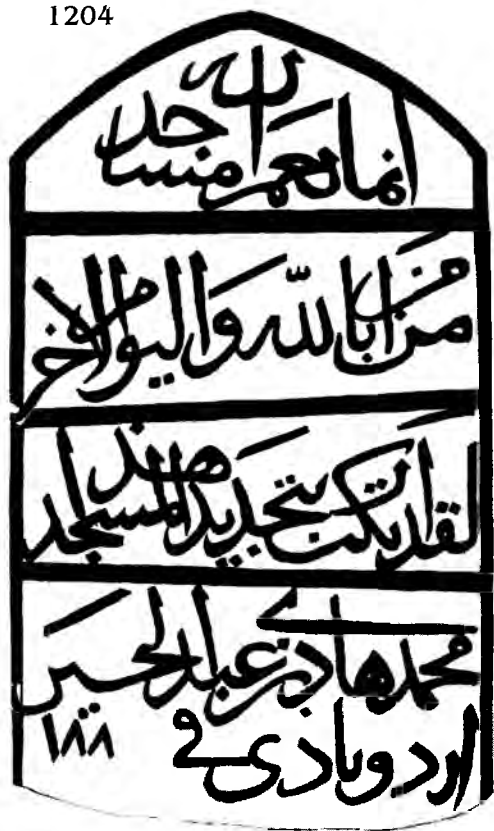 1204
انما يعمر مساجد الله
من امن بالله واليوم الاخر
لقد بتجديد هذ المسجد
محمد هادى بن عبد الحسين
اردوبادى فى ١٨٨